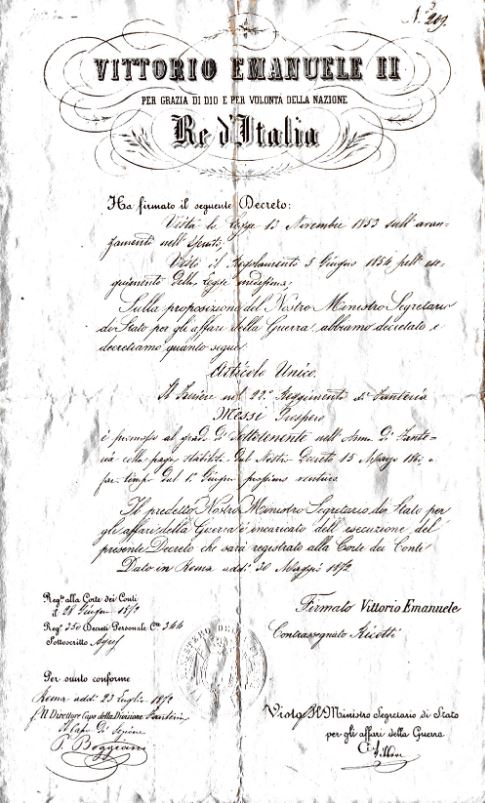 N.º 219.
VITTORIO EMANUELE II
PER GRAZIA DI DIO E PER VOLONTÀ DELLA NAZIONE
Re d'Italia
Ha firmato il seguente Decreto:
Vista la Legge 13 Novembre 1853 sull'avan-
zamento nell'Esercito;
Visto il Regolamento 5 Giugno 1854 pell'ese-
guimento della Legge medesima;
Sulla proposizione del Nostro Ministro Segretario
di Stato per gli affari della Guerra, abbiamo decretato e
decretiamo quanto segue:
Articolo Unico.
Il Furiere nel 22º Reggimento di Fanteria
Messi Prospero
è promosso al grado di Sottotenente nell'Arma di Fante-
ria colla paga stabilita dal Nostro Decreto 15 Marzo
far tempo dal 1º Giugno prossimo venturo.
Il predetto Nostro Ministro Segretario di Stato per
gli affari della Guerra è incaricato dell'esecuzione del
presente Decreto che sarà registrato alla Corte dei Conti
Dato in Roma addì 30 Maggio
Reg.to alla Corte dei Conti
il 28 Giugno
Reg.º 250 Decreti Personale C.te 344
Sottoscritto
Firmato Vittorio Emanuele
Contrassegnato Ricotti
Per sunto conforme
Roma addì 23 Luglio
Il Direttore Capo della Divisione Fanteria
Il Capo di Sezione
Visto Il Ministro Segretario di Stato
per gli affari della Guerra